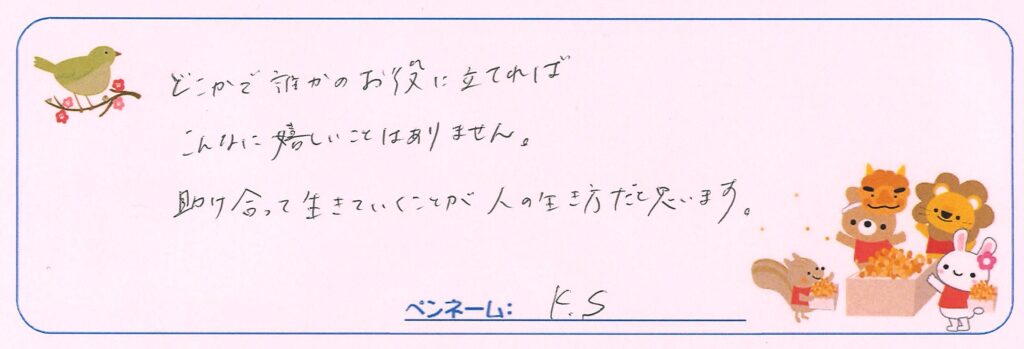 どこかで誰かのお役に立てれば
こんなに嬉しいことはありません。
助け合って生きていくことが人の生き方だと思います。
ペンネーム: K.S